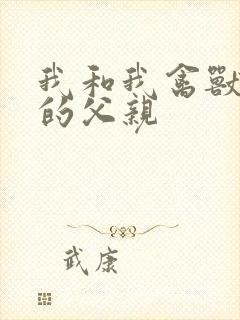 我和我禽獸
的父親
武康